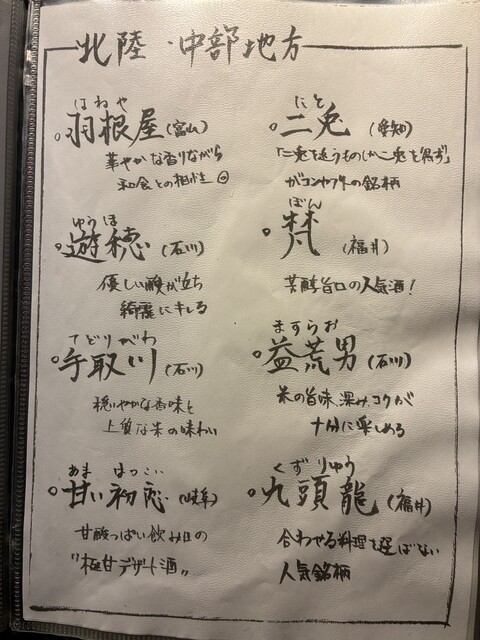 北陸・中部地方
はねや
羽根屋(富山)
華やかな香りながら
和食との相性◎
にと
二兎(愛知)
「二兎を追うものしか二兎を得ず」
がコンセプトの銘柄
ゆうほ
遊穂(石川)
優しい酸が立ち
綺麗にキレる
ぼん
梵(福井)
芳醇旨口の人気酒!
てどりがわ
手取川(石川)
穏やかな香味と
上質な米の味わい
ますらお
益荒男(石川)
米の旨味、深み、コクが
十分に楽しめる
あま はつこい
甘い初恋(岐阜)
甘酸っぱい飲み口の
"極甘デザート酒"
くずりゅう
九頭龍(福井)
合わせる料理を選ばない
人気銘柄